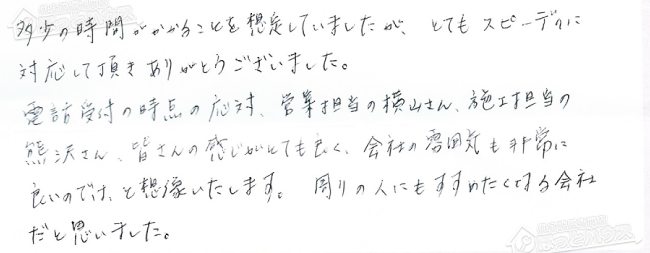 多少の時間がかかることを想定していましたが、とてもスピーディに
対応して頂きありがとうございました。
電話受付の時点の応対、営業担当の横山さん、施工担当の
熊沢さん、皆さんの感じがとても良く、会社の雰囲気も非常に
良いのでは、と想像いたします。周りの人にもすすめたくする会社
だと思いました。